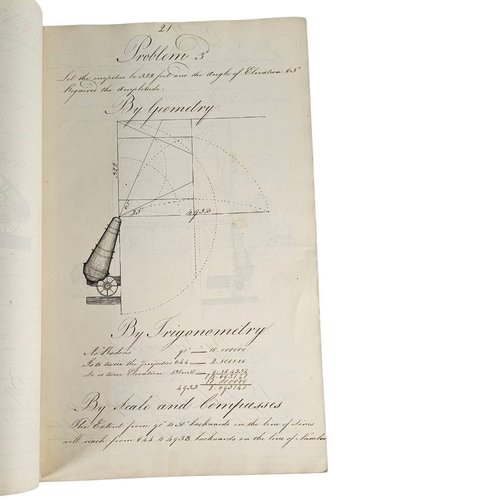 21
Problem 3d
Let the impetus be 322 feet and the Angle of Elevation 65°
Required the Amplitude.
By Geometry
322
65°
493.3
By Trigonometry
As Radius 90° — 10.000000
Is to twice the Impetus 644 — 2.808886
So is twice Elevation
12.693140
10.000000
493.3 — 2.693140
By Scale and Compasses
The Extent from 90° to 50° backwards on the line of Sines
will reach from 644 to 493.3 backwards on the line of Numbers